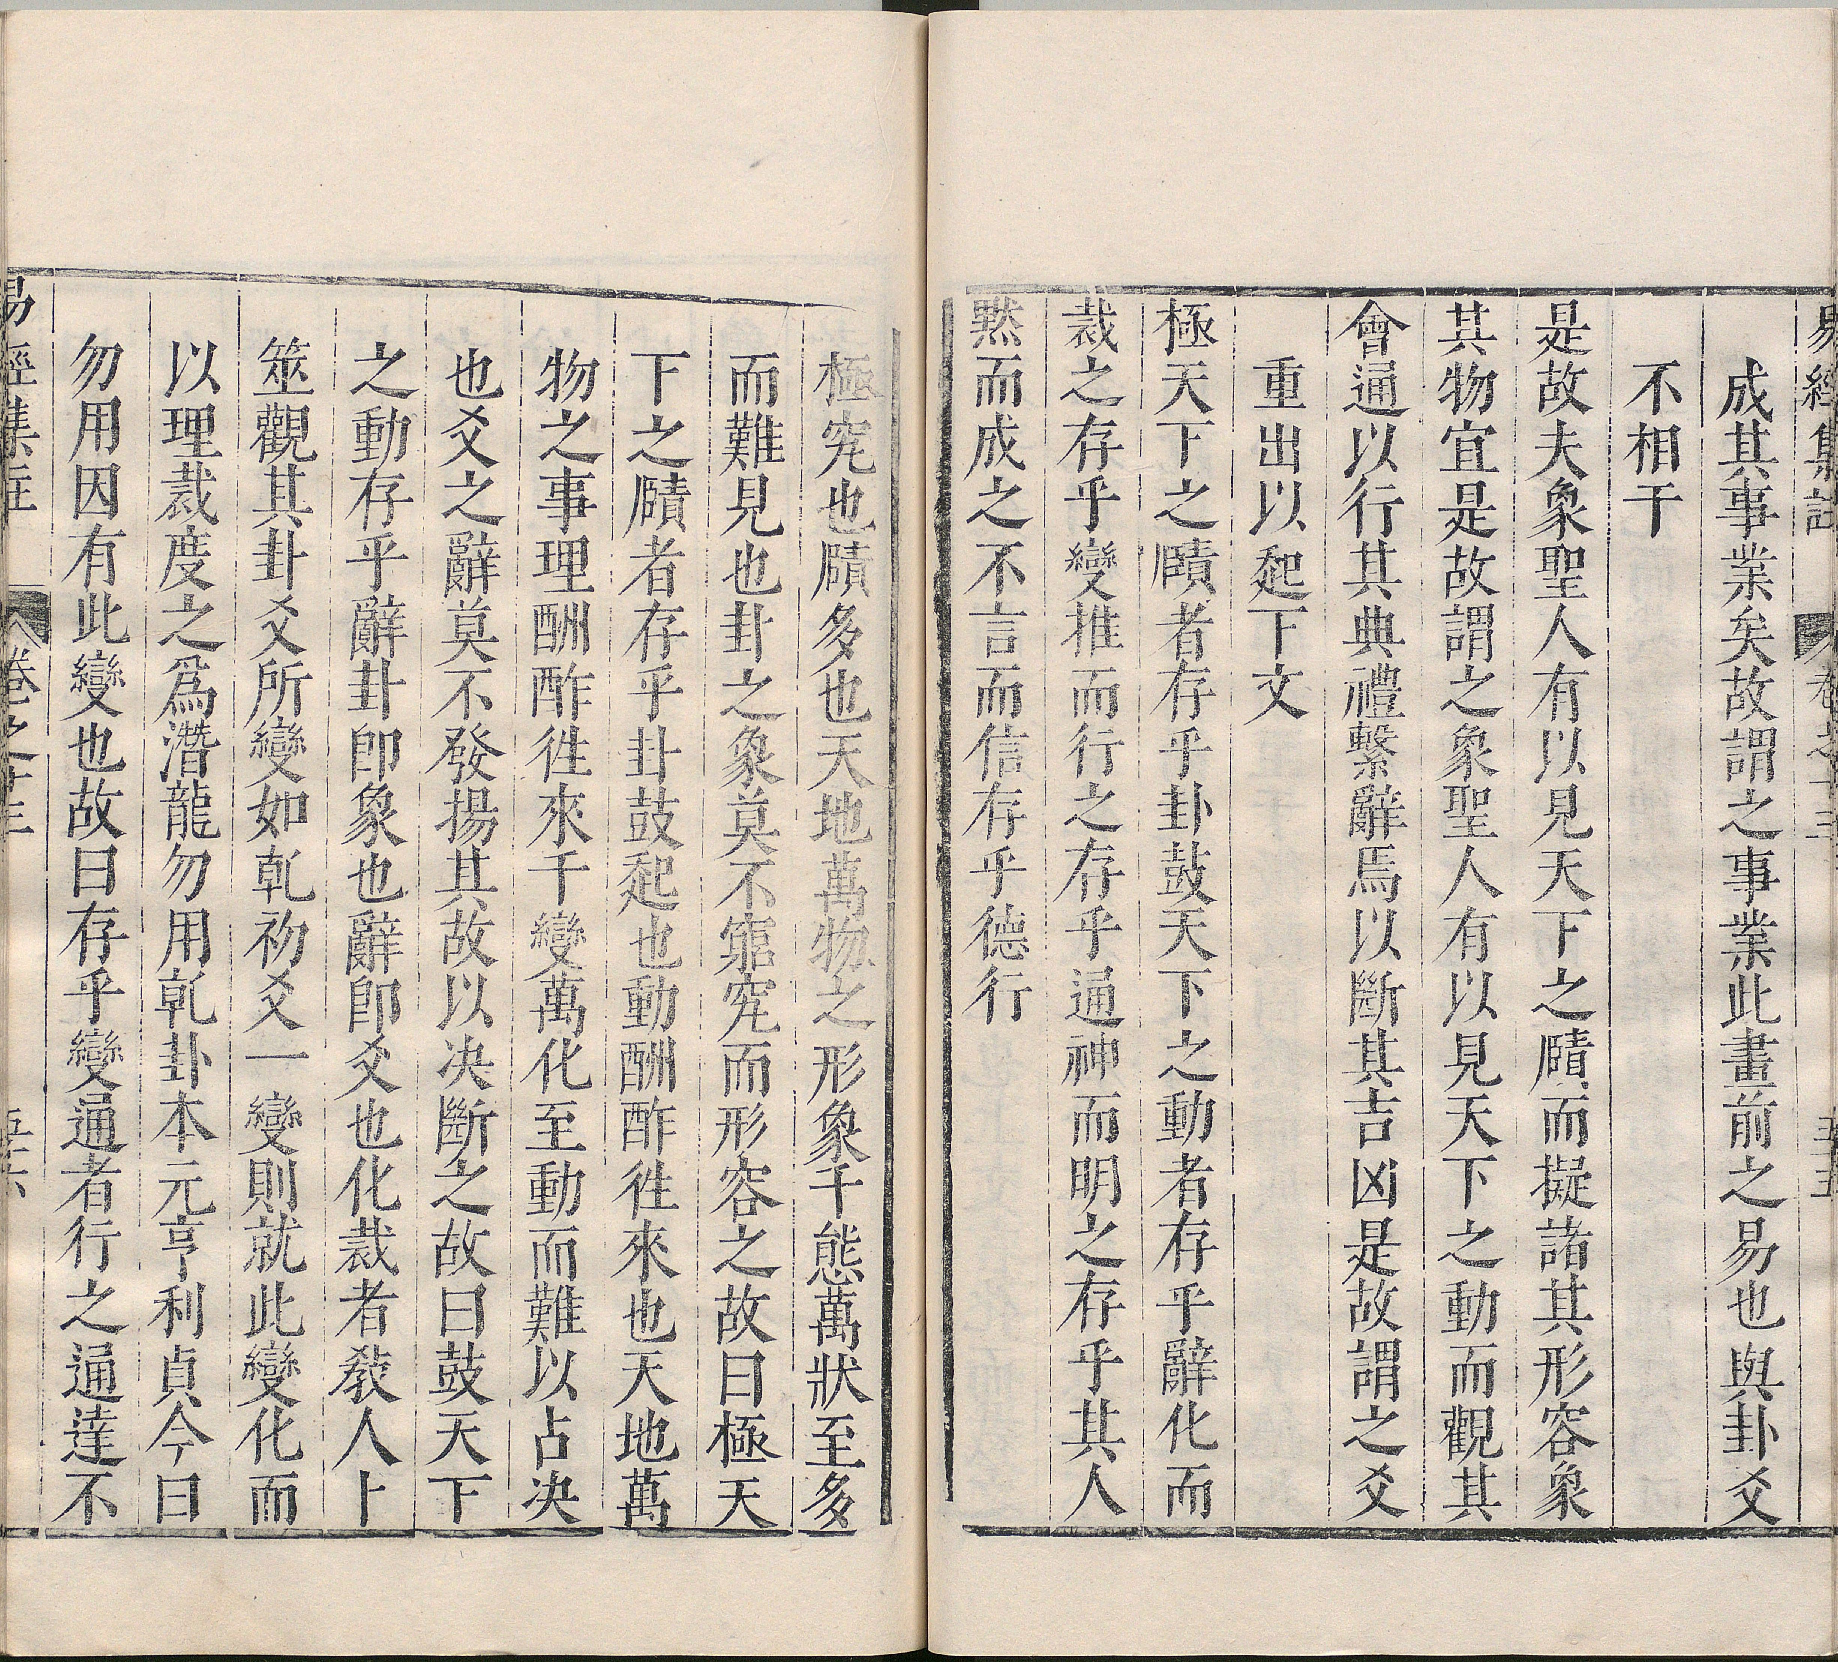 易經集註 卷之十三 五十五
成其事業矣故謂之事業此畫前之易也與卦爻
不相干
是故夫象聖人有以見天下之賾而擬諸其形容象
其物宜是故謂之象聖人有以見天下之動而觀其
會通以行其典禮繫辭焉以斷其吉凶是故謂之爻
重出以起下文
極天下之賾者存乎卦鼓天下之動者存乎辭化而
裁之存乎變推而行之存乎通神而明之存乎其人
黙而成之不言而信存乎德行
極究也賾多也天地萬物之形象千態萬狀至多
而難見也卦之象莫不窮究而形容之故曰極天
下之賾者存乎卦鼓起也動酬酢徃來也天地萬
物之事理酬酢徃來千變萬化至動而難以占决
也爻之辭莫不發揚其故以决斷之故曰鼓天下
之動存乎辭卦卽象也辭卽爻也化裁者敎人卜
筮觀其卦爻所變如乹初爻一變則就此變化而
以理裁度之爲潛龍勿用乹卦本元亨利貞今曰
勿用因有此變也故曰存乎變通者行之通達不
易經集註 卷之十三 五十六